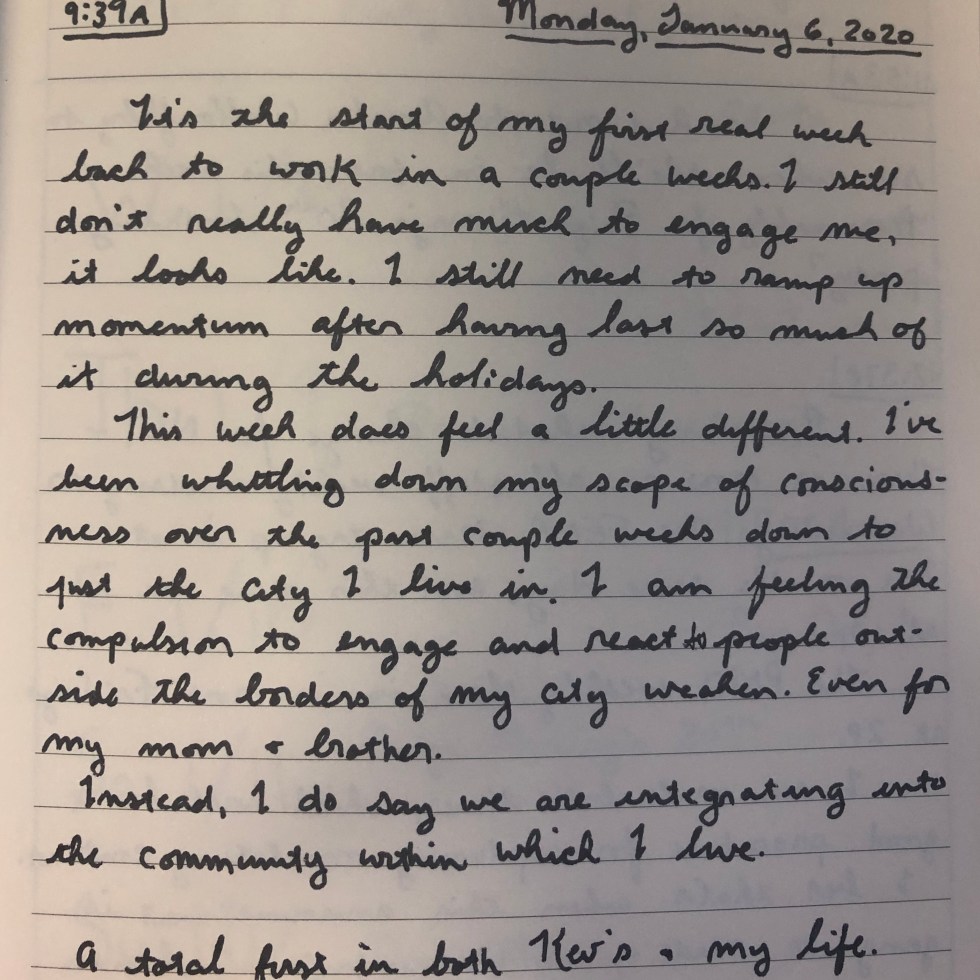 9:39A
Monday, January 6, 2020
It's the start of my first real week
back to work in a couple weeks. I still
don't really have much to engage me,
it looks like. I still need to ramp up
momentum after having lost so much of
it during the holidays.
This week does feel a little different. I've
been whittling down my scope of conscious-
ness over the past couple weeks down to
just the city I live in. I am feeling the
compulsion to engage and react to people out-
side the borders of my city weaken. Even for
my mom & brother.
Instead, I do say we are integrating into
the community within which I live.
A total first in both Kev's & my life.